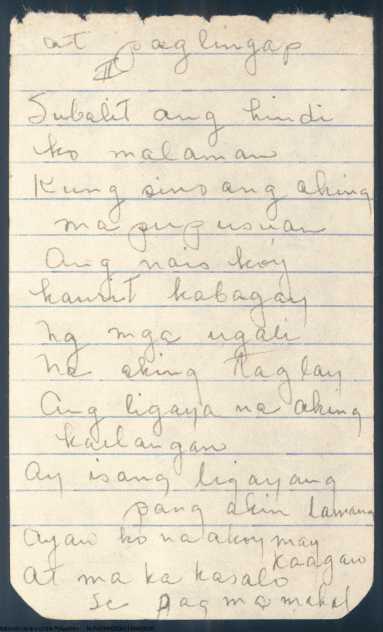 at paglingap
II
Subalit ang hindi
ko malaman
Kung sino ang aking
mapupusuan
Ang nais koy
kaurit kabagay
ng mga ugali
na aking taglay
Ang ligaya na aking
kailangan
Ay isang ligayang
pang akin lamang
Ayaw ko na akoy may
kaagaw
at ma ka kasalo
sa pag mamahal